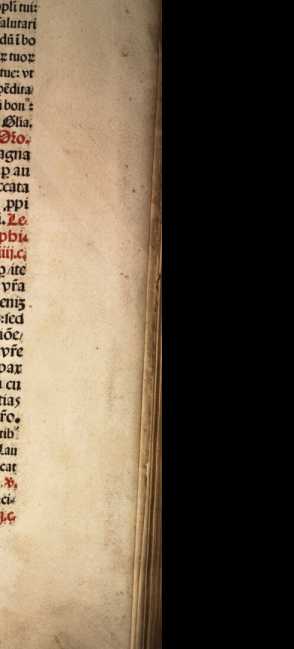 pl̄i tui:
salutari
dū i bo
ꝝ tuoꝝ
tue: vt
pēdita
bon⁹:
Glīa.
Oro.
agna
ꝑ au
ccata
ꝓpi
i. Le
phi.
iiij.c.
ꝓ ite
vr̄a
eniꝫ
:sed
iōe
vr̄e
paꝝ
u cu
tias
r̄o.
tib⁹
Lau
cat
℣.
ci
j.c.